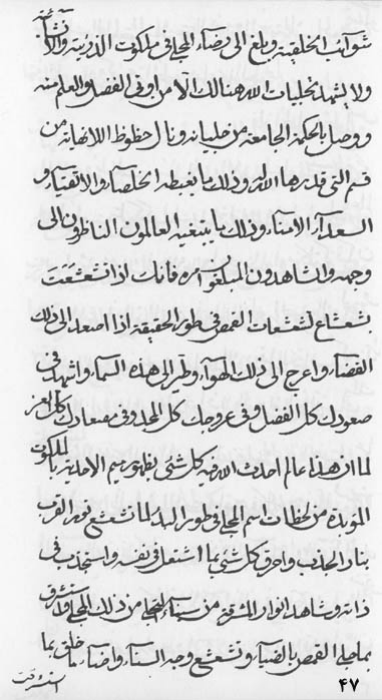 شوائب الخلقية وبلغ الى فضاء المجلى في ملكوت الازلية والا
ولا يشهد تجليات الله هنالك الا من اوفى الفضل والعلم منه
ووصل بالحكمة الجامعة من ونال حظوظ اللانهاية من
قسم التي قدرها الله له وذلك ما يغبطه الخلصاء والاتقياء و
السعداء الامناء وذلك ما يبتغيه العالمون الناظرون الى
وجهه والشاهدون المبلغون امره فانك اذا تشعشعت
بشعشاع تشعشعات القمص في طور الحقيقة اذا اصعد الى ذلك
الفضاء واعرج الى ذلك الهواء وطر الى هذه السماء واشهد في
صعودك كل الفضل وفي عروجك كل المجد وفي مصعادك كل العز
لما ان هذا عالم احدث الله فيه كل شئ بظهور اسم الاحدية بالملكوت
المؤيدة من لحظات اسم المجلى في طور لما تشعشع نور القرب
بنار الجذب واحرق كل شئ بما اشتعل في نفسه واستجذب في
ذاته وشاهد انوار المشرقة من سيناء المجلى من ذلك المجلى قد استشرق
بما حلى القمص بالضياء وتشعشع وجه السناء واضاء ما خلق بما
استشرقت
۴۷